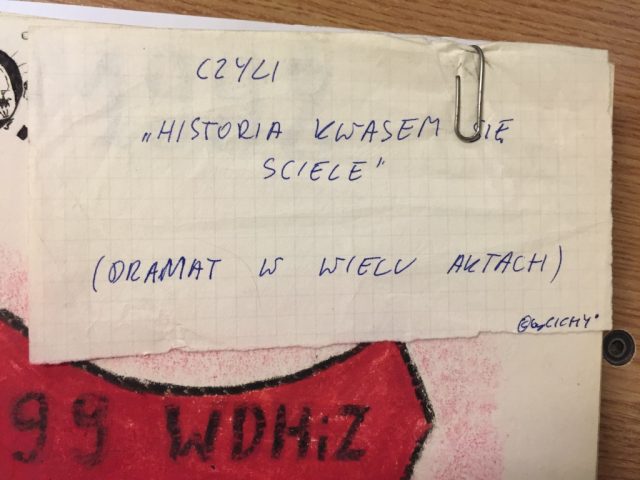 CZYLI
„HISTORIA KWASEM SIĘ
SCIELE"
(DRAMAT W WIELU AKTACH)
©by CICHY
99 WDHiZ